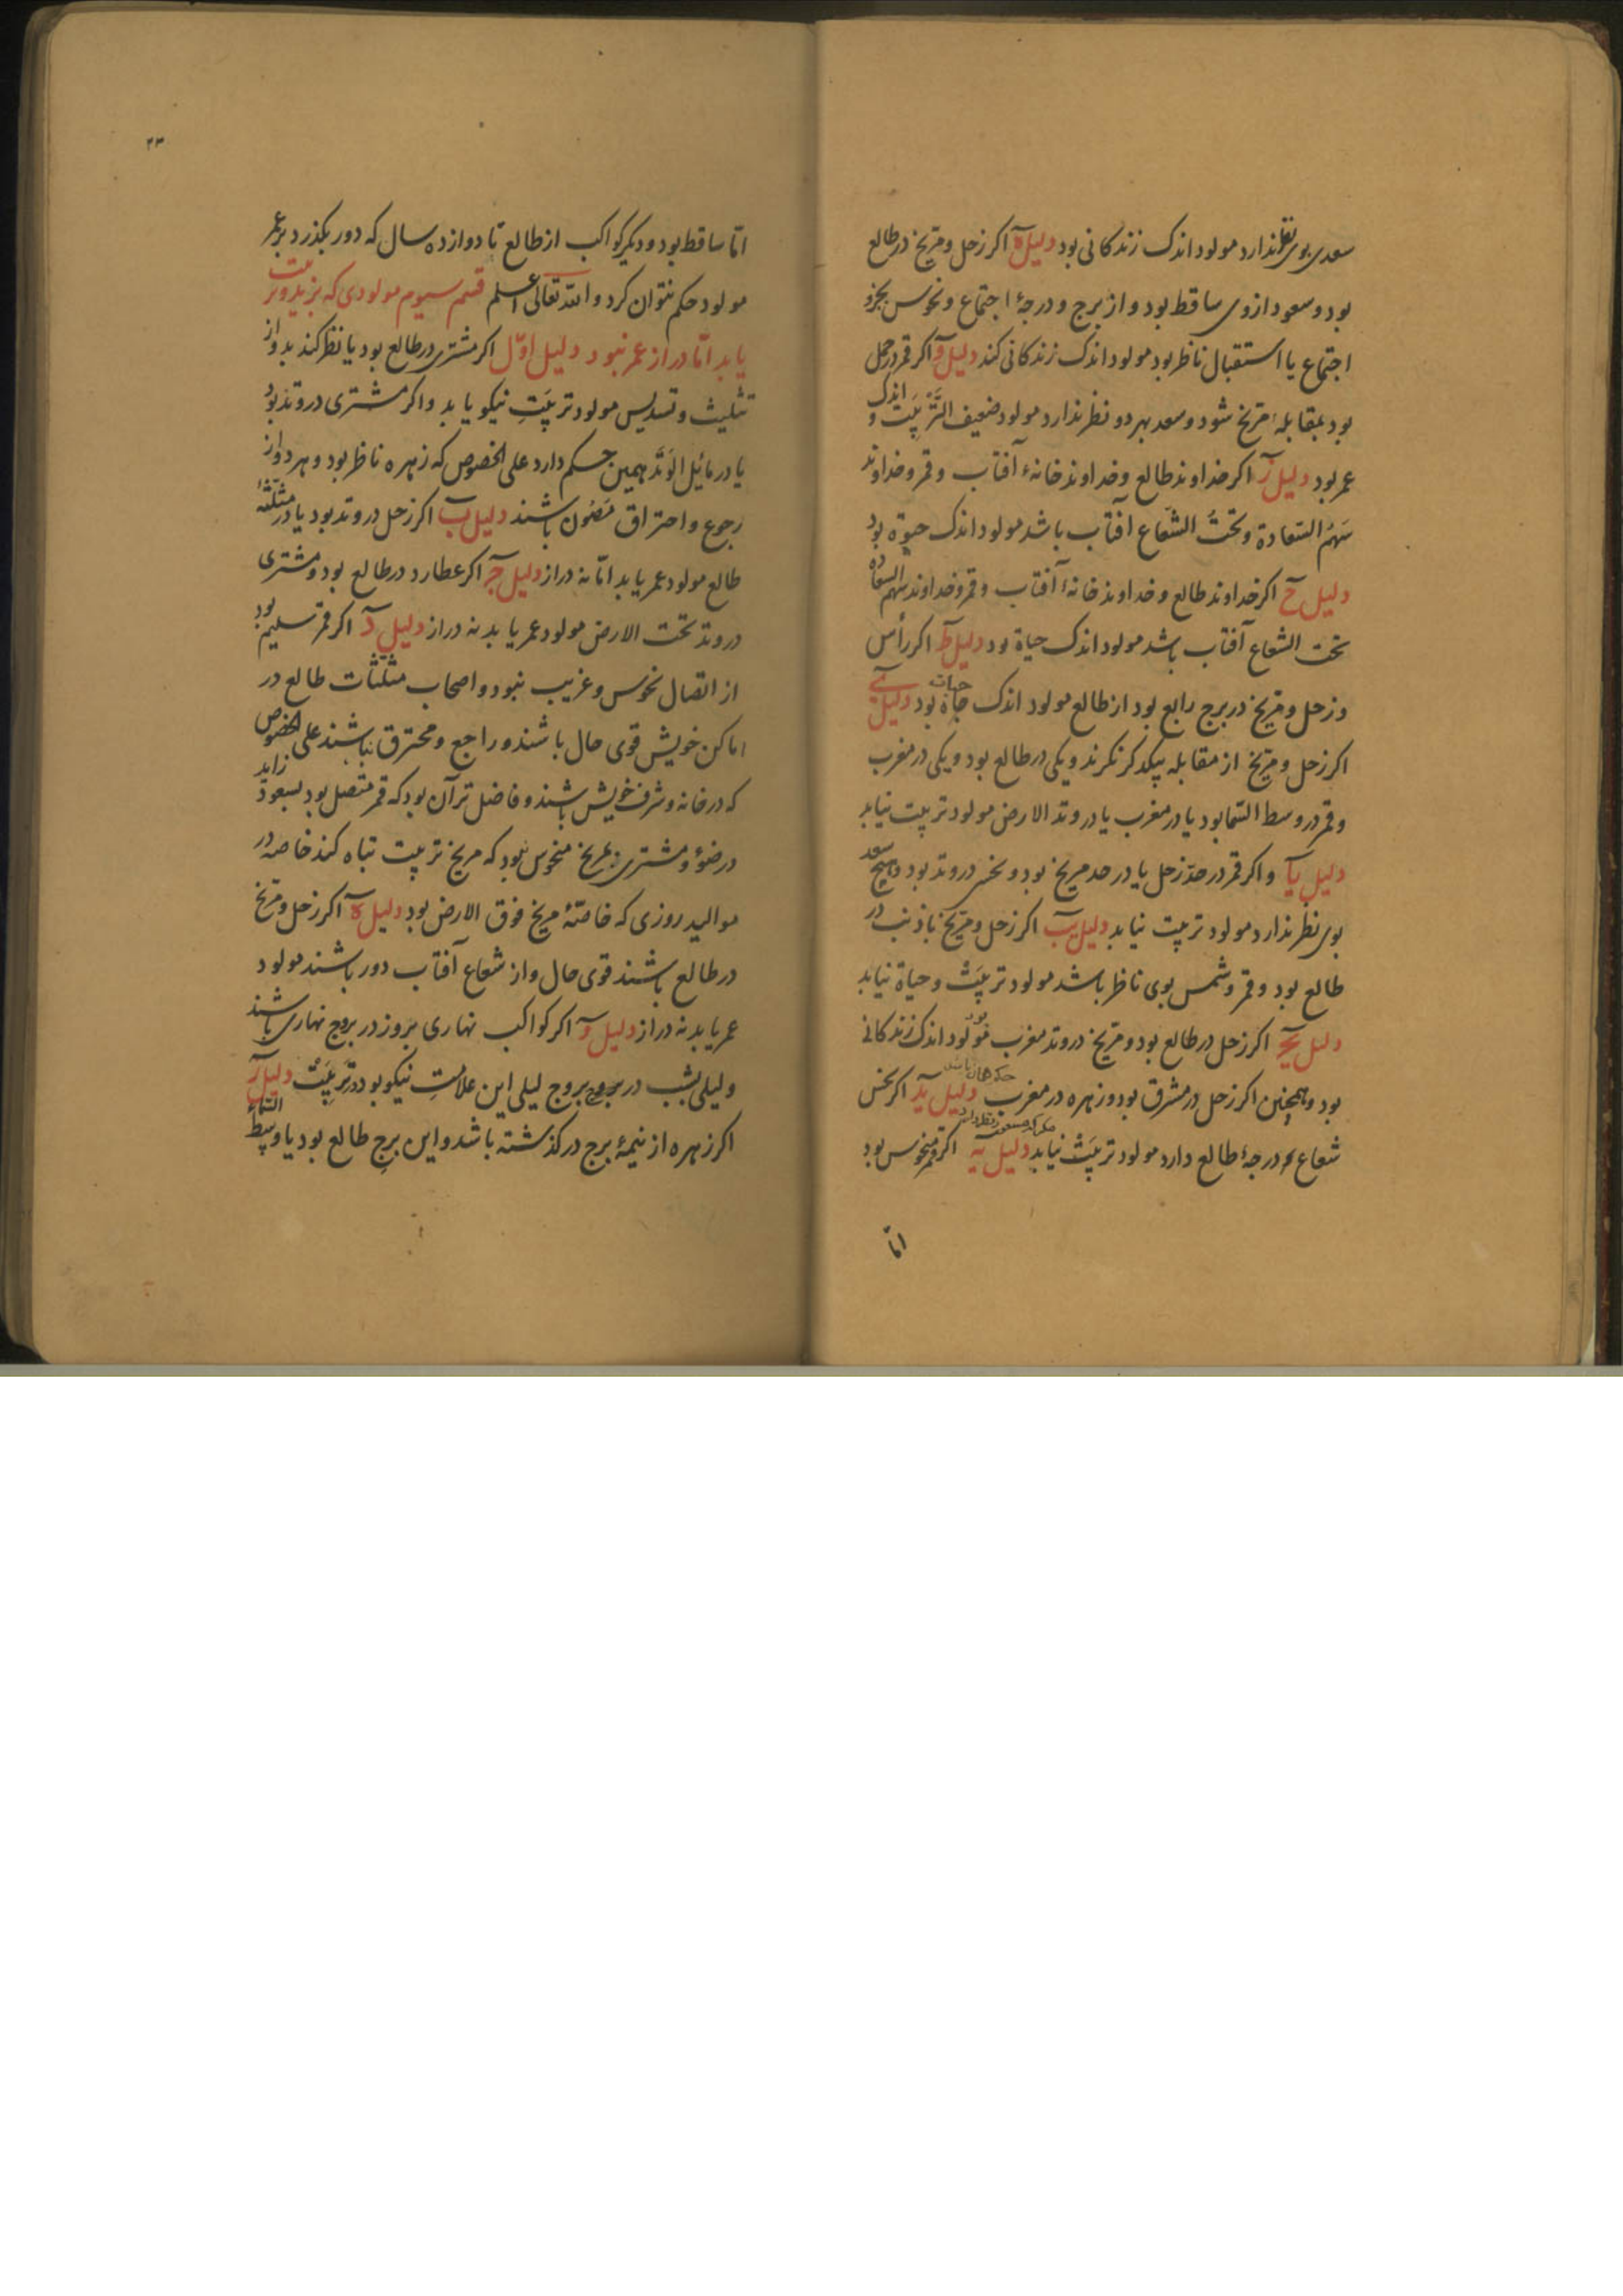 سعدی بوی نظر ندارد مولود اندک زندکانی بود دلیل ه اکر زحل و مریخ در طالع
بود و سعود ازوی ساقط بود و از برج و درجهٔ اجتماع و نحوس بجزو
اجتماع یا استقبال ناظر بود مولود اندک زندکانی کند دلیل و اکر قمر در حمل
بود بمقابلهٔ مریخ شود و سعد بهر دو نظر ندارد مولود ضعیف التَّربیَت و اندک
عمر بود دلیل ز اکر خداوند طالع و خداوند خانهٔ آفتاب و قمر و خداوند
سَهمُ السّعادة و تحتُ الشّعاع آفتاب باشد مولود اندک حیوة بود
دلیل ح اکر خداوند طالع و خداوند خانهٔ آفتاب و قمر و خداوند سهم السعاده
تحت الشعاع آفتاب باشد مولود اندک حیاة بود دلیل ط اکر رأس
و زحل و مریخ در برج رابع بود از طالع مولود اندک حیات بود دلیل ی
اکر زحل و مریخ از مقابله بیکدکر نکرند و یکی در طالع بود و یکی در مغرب
و قمر در وسط السّما بود یا در مغرب یا در وتد الارض مولود تربیت نیابد
دلیل یا و اکر قمر در حدّ زحل یا در حد مریخ بود و نحس در وتد بود و هیچ سعد
بوی نظر ندارد مولود تربیت نیابد دلیل یب اکر زحل و مریخ با ذنب در
طالع بود و قمر و شمس بوی ناظر باشد مولود تربیَتْ و حیاة نیابد
دلیل یج اکر زحل در طالع بود و مریخ در وتد مغرب بود مولود اندک زندکانی
بود و همچنین اکر زحل در مشرق بود و زهره در مغرب حکم همان باشد دلیل ید اکر نحس
شعاع بر درجهٔ طالع دارد مولود تربیَتْ نیابد دلیل یه اکر قمر منحوس بود
امّا
۲۳
امّا ساقط بود و دیکر کواکب از طالع تا دوازده سال که دور بکذرد بر عمر
مولود حکم نتوان کرد و الله تعالی اعلم قسم سیوم مولودی که بزید و تربیت
یابد امّا دراز عمر نبود دلیل اوّل اکر مشتری در طالع بود یا نظر کند بدو از
تثلیث و تسدیس مولود تربیَتِ نیکو یابد و اکر مشتری در وتد بود
یا در مائل الوَتَد همین حکم دارد علی الخصوص که زهره ناظر بود و هر دو از
رجوع و احتراق مَصُون باشند دلیل ب اکر زحل در وتد بود یا در مثلّثهٔ
طالع مولود عمر یابد امّا نه دراز دلیل ج اکر عطارد در طالع بود و مشتری
در وتد تحت الارض مولود عمر یابد نه دراز دلیل د اکر قمر سلیم بود
از اتصال نحوس و غریب نبود و اصحاب مثلّثات طالع در
اماکن خویش قوی حال باشند و راجع و محترق نباشند علی الخصوص
که در خانه و شرف خویش باشند و فاضل تر آن بود که قمر متصل بود بسعود زاید
در ضوٴ و مشتری بمریخ منحوس نبود که مریخ تربیت تباه کند خاصه در
موالید روزی که خاصّهٔ مریخ فوق الارض بود دلیل ه اکر زحل و مریخ
در طالع باشند قوی حال و از شعاع آفتاب دور باشند مولود
عمر یابد نه دراز دلیل و اکر کواکب نهاری بروز در بروج نهاری باشند
و لیلی بشب در بروج بروج لیلی این علامتِ نیکو بود در تَربیَتْ دلیل ز
اکر زهره از نیمهٔ برج در کذشته باشد و این برجِ طالع بود یا وسط السّماء